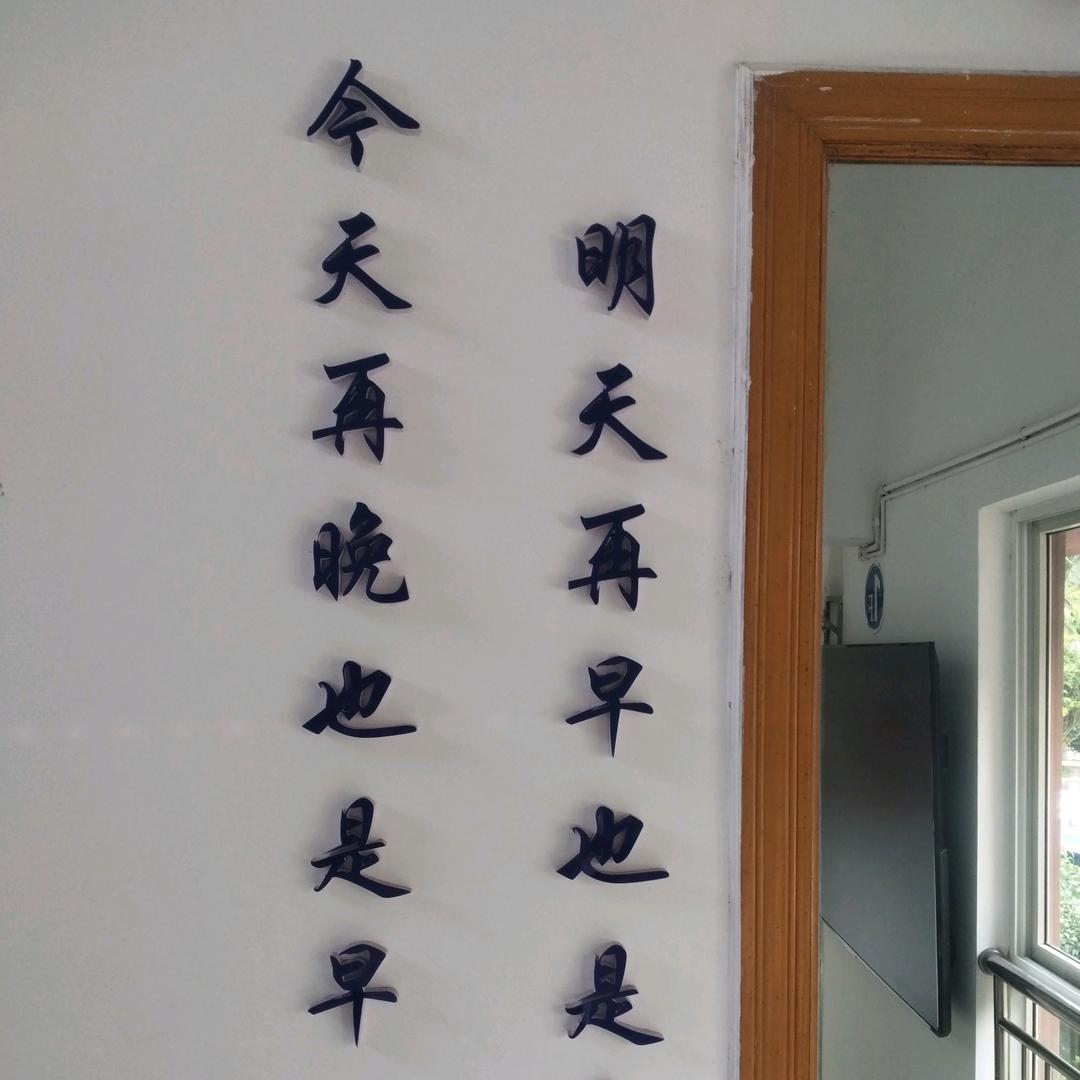 今天再晚也是早
明天再早也是